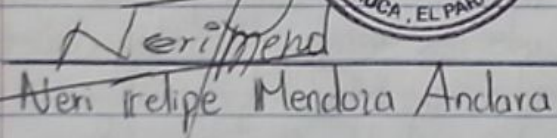 UCA, EL PAR
Nerimend
Neri Felipe Mendoza Andara